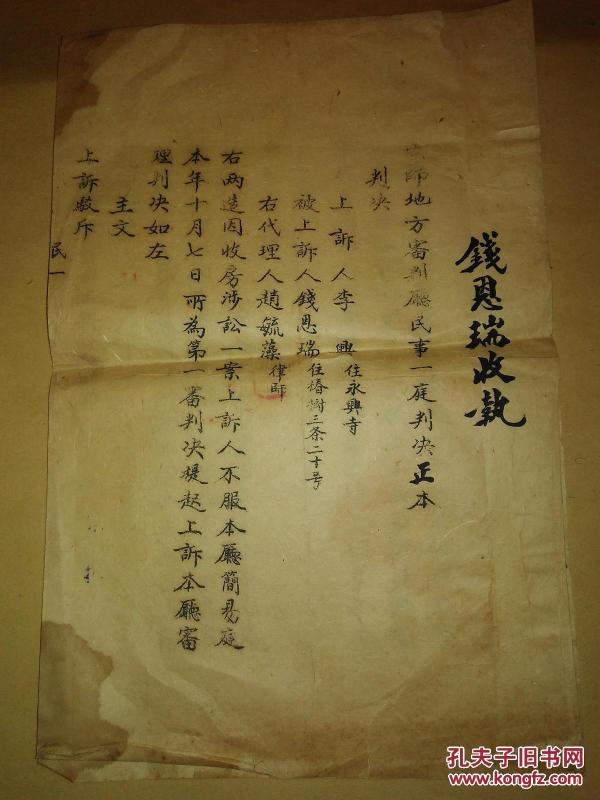 錢恩瑞收執
京師地方審判廳民事一庭判决正本
判决
上訴人李興住永興寺
被上訴人錢恩瑞住椿樹三条二十号
右代理人趙毓藻律師
右两造因收房涉訟一案上訴人不服本廳簡易庭
本年十月七日所為第一審判决提起上訴本廳審
理判决如左
主文
上訴駁斥
民一
孔夫子旧书网
www.kongfz.com